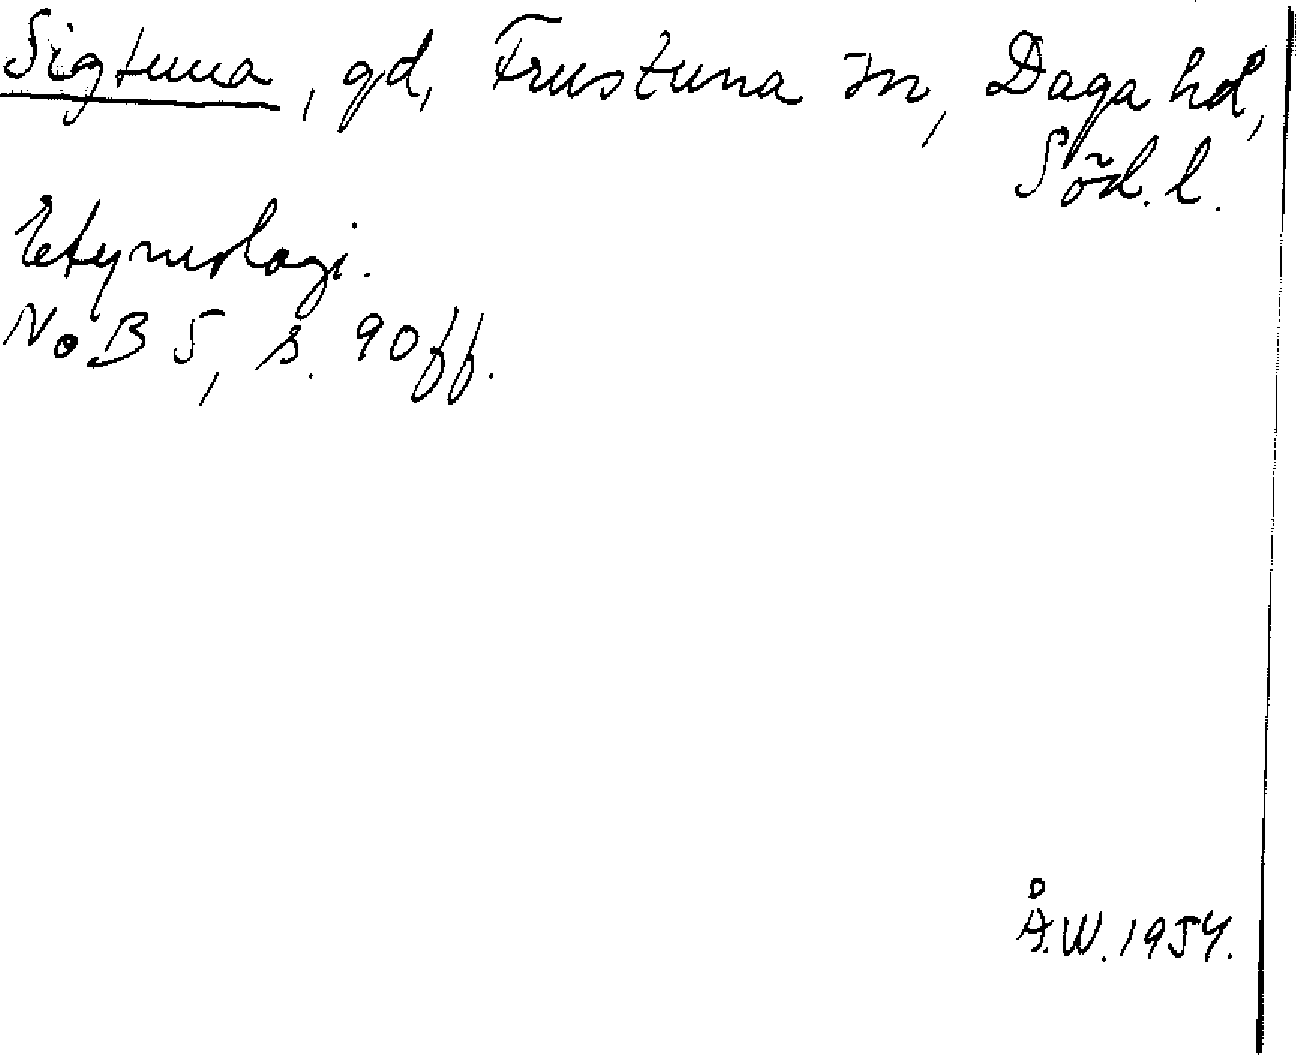 Sigtuna, gd, Frustuna sn, Daga hd,
Söd. l.
Etymologi.
NoB 5, s. 90 ff.
Å.W. 1954.